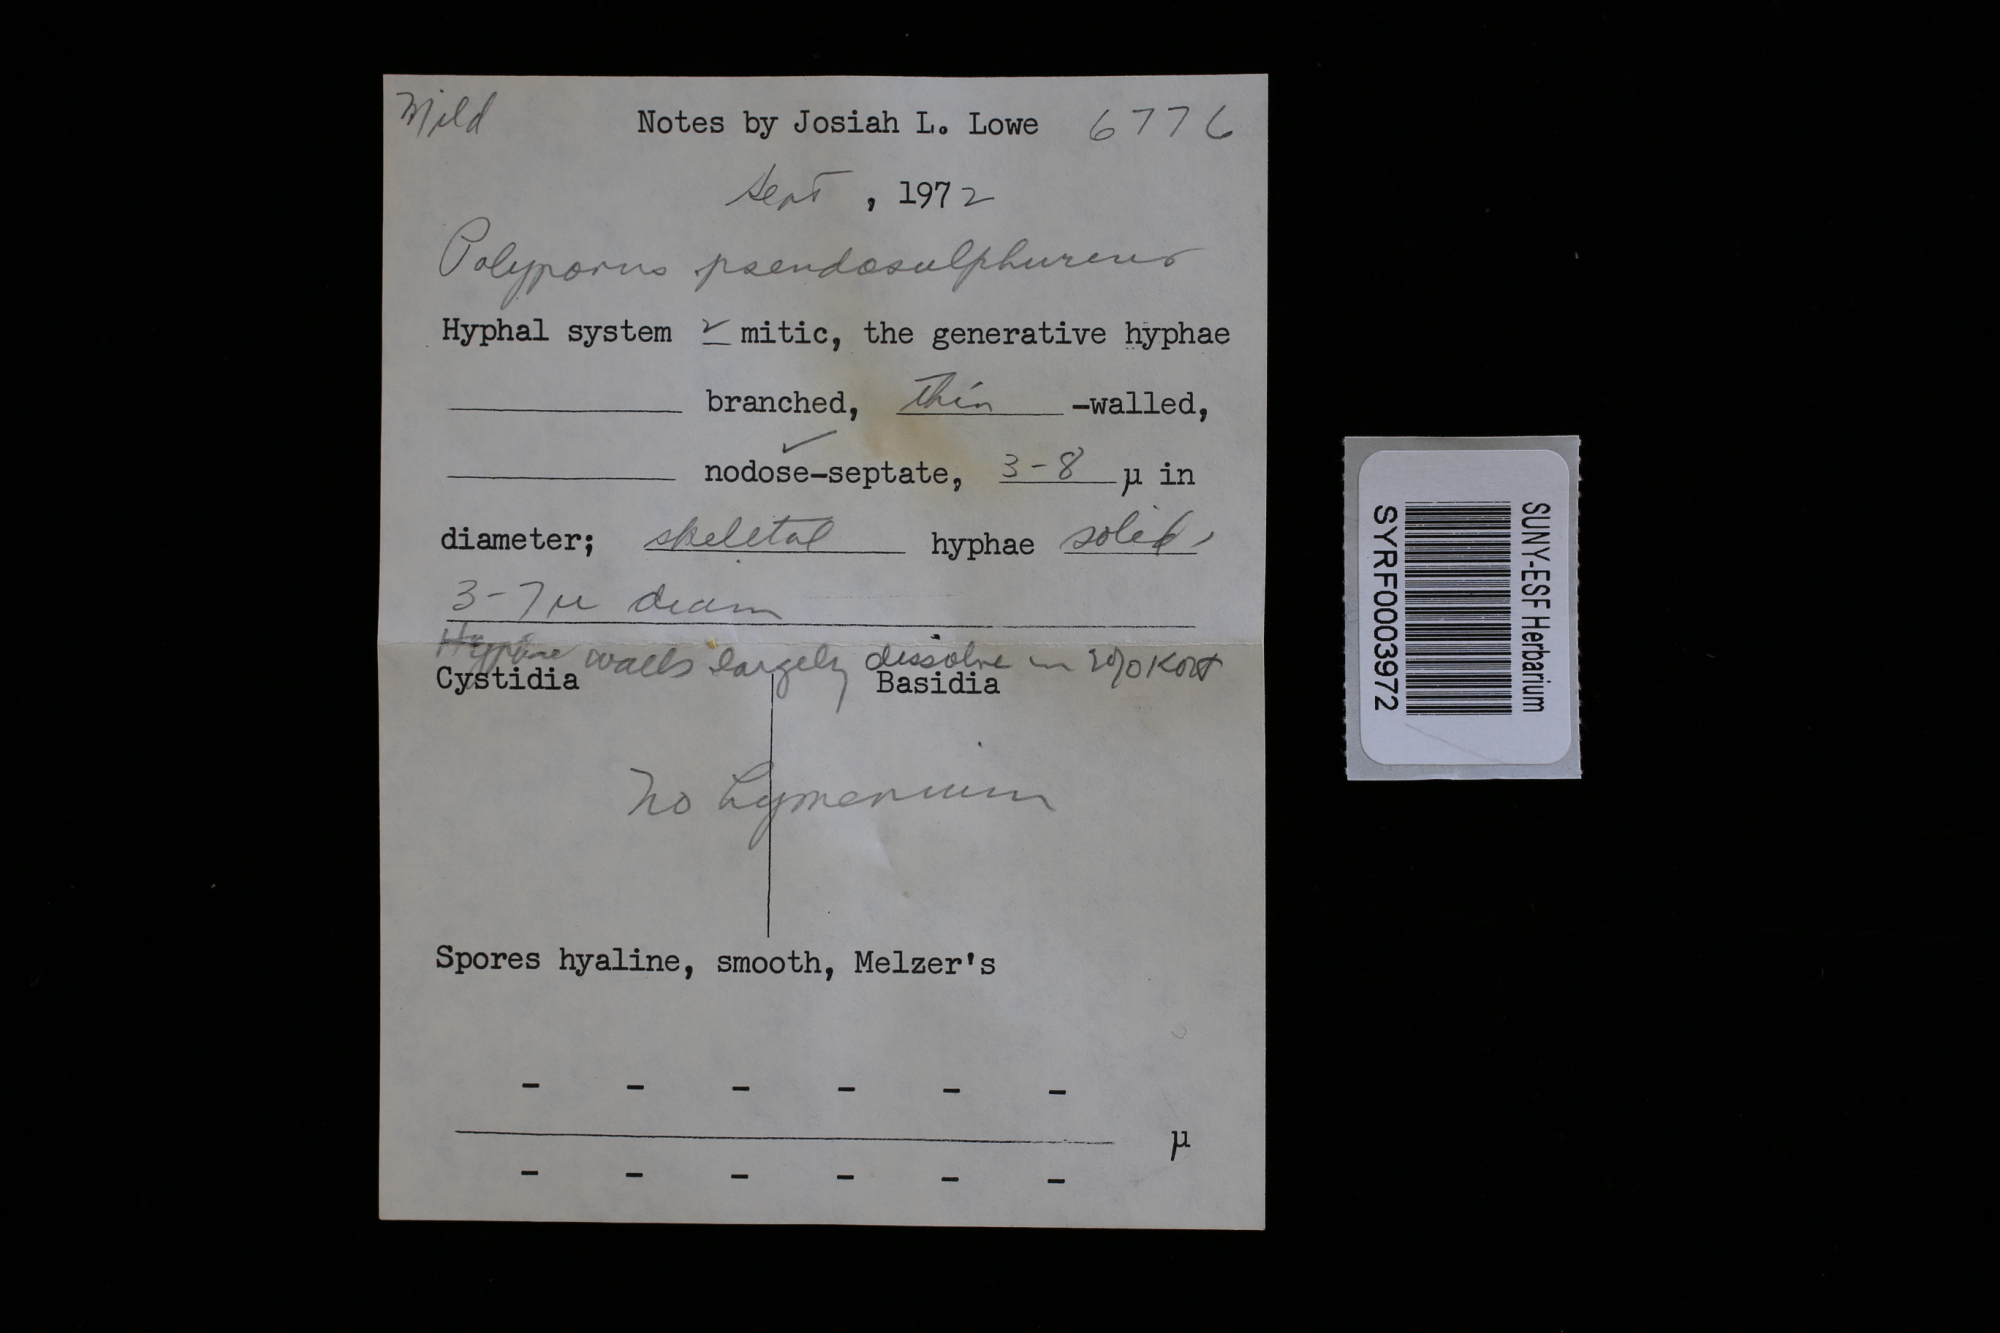 Mild Notes by Josiah L. Lowe 6776
Sept , 1972
Polyporus pseudosulphureus
Hyphal system 2 mitic, the generative hyphae
branched, thin -walled,
✓
nodose-septate, 3-8 µ in
diameter; skeletal hyphae solid,
3-7µ diam
walls largely dissolve in 2% KOH
Cystidia Basidia
No hymenium
Spores hyaline, smooth, Melzer's
- - - - - -
µ
- - - - - -
SUNY-ESF Herbarium
SYRF0003972